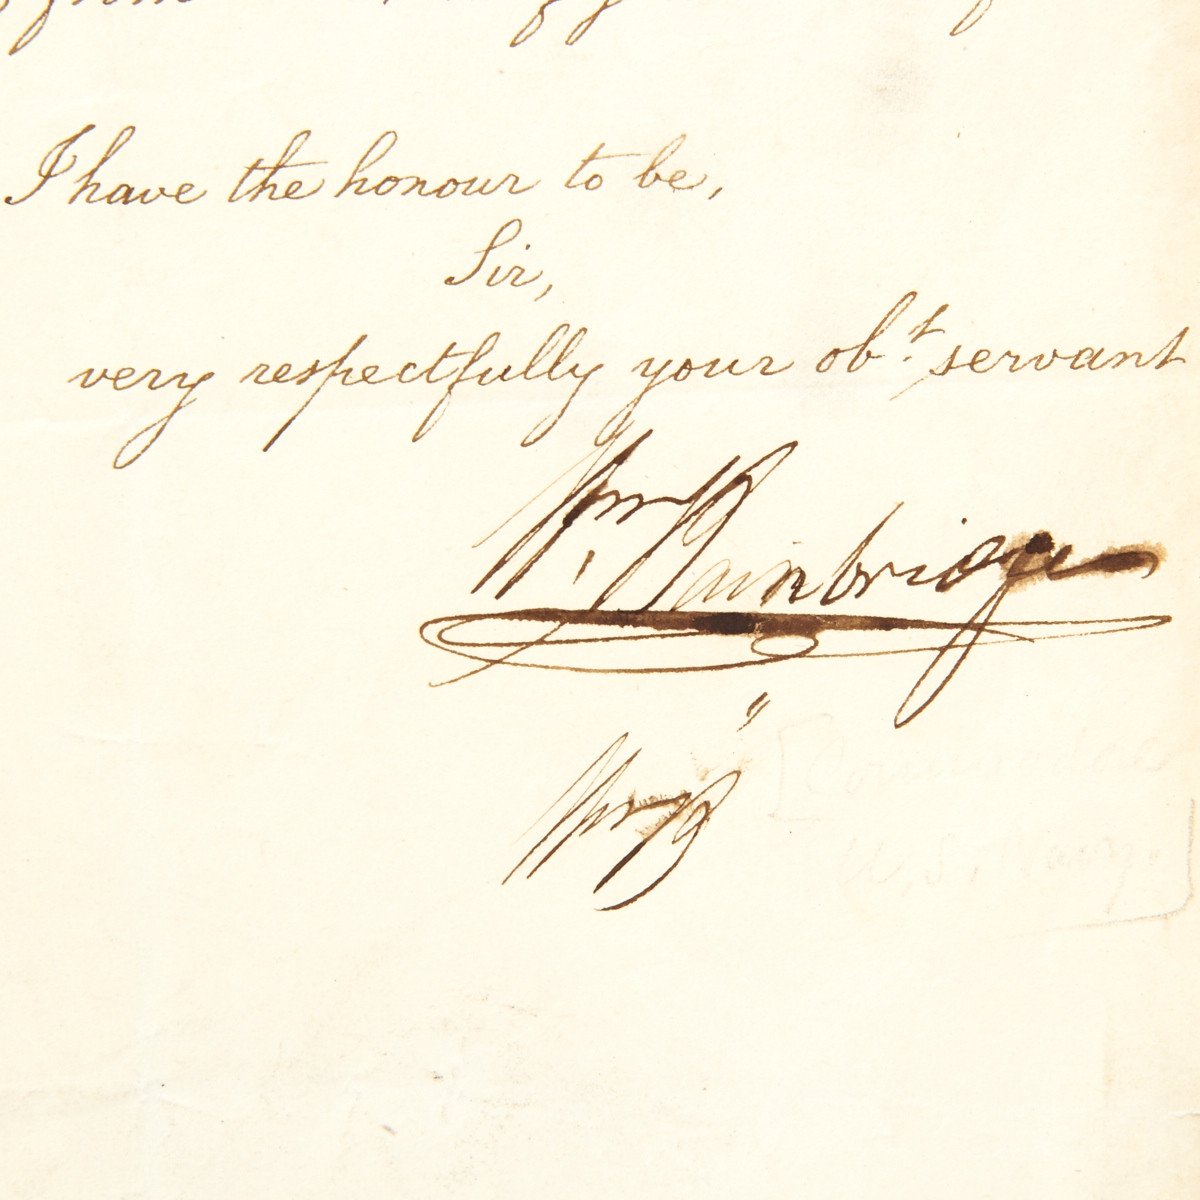 I have the honour to be,
Sir,
very respectfully your obt. servant
Wm. Bainbridge
"
Wm B